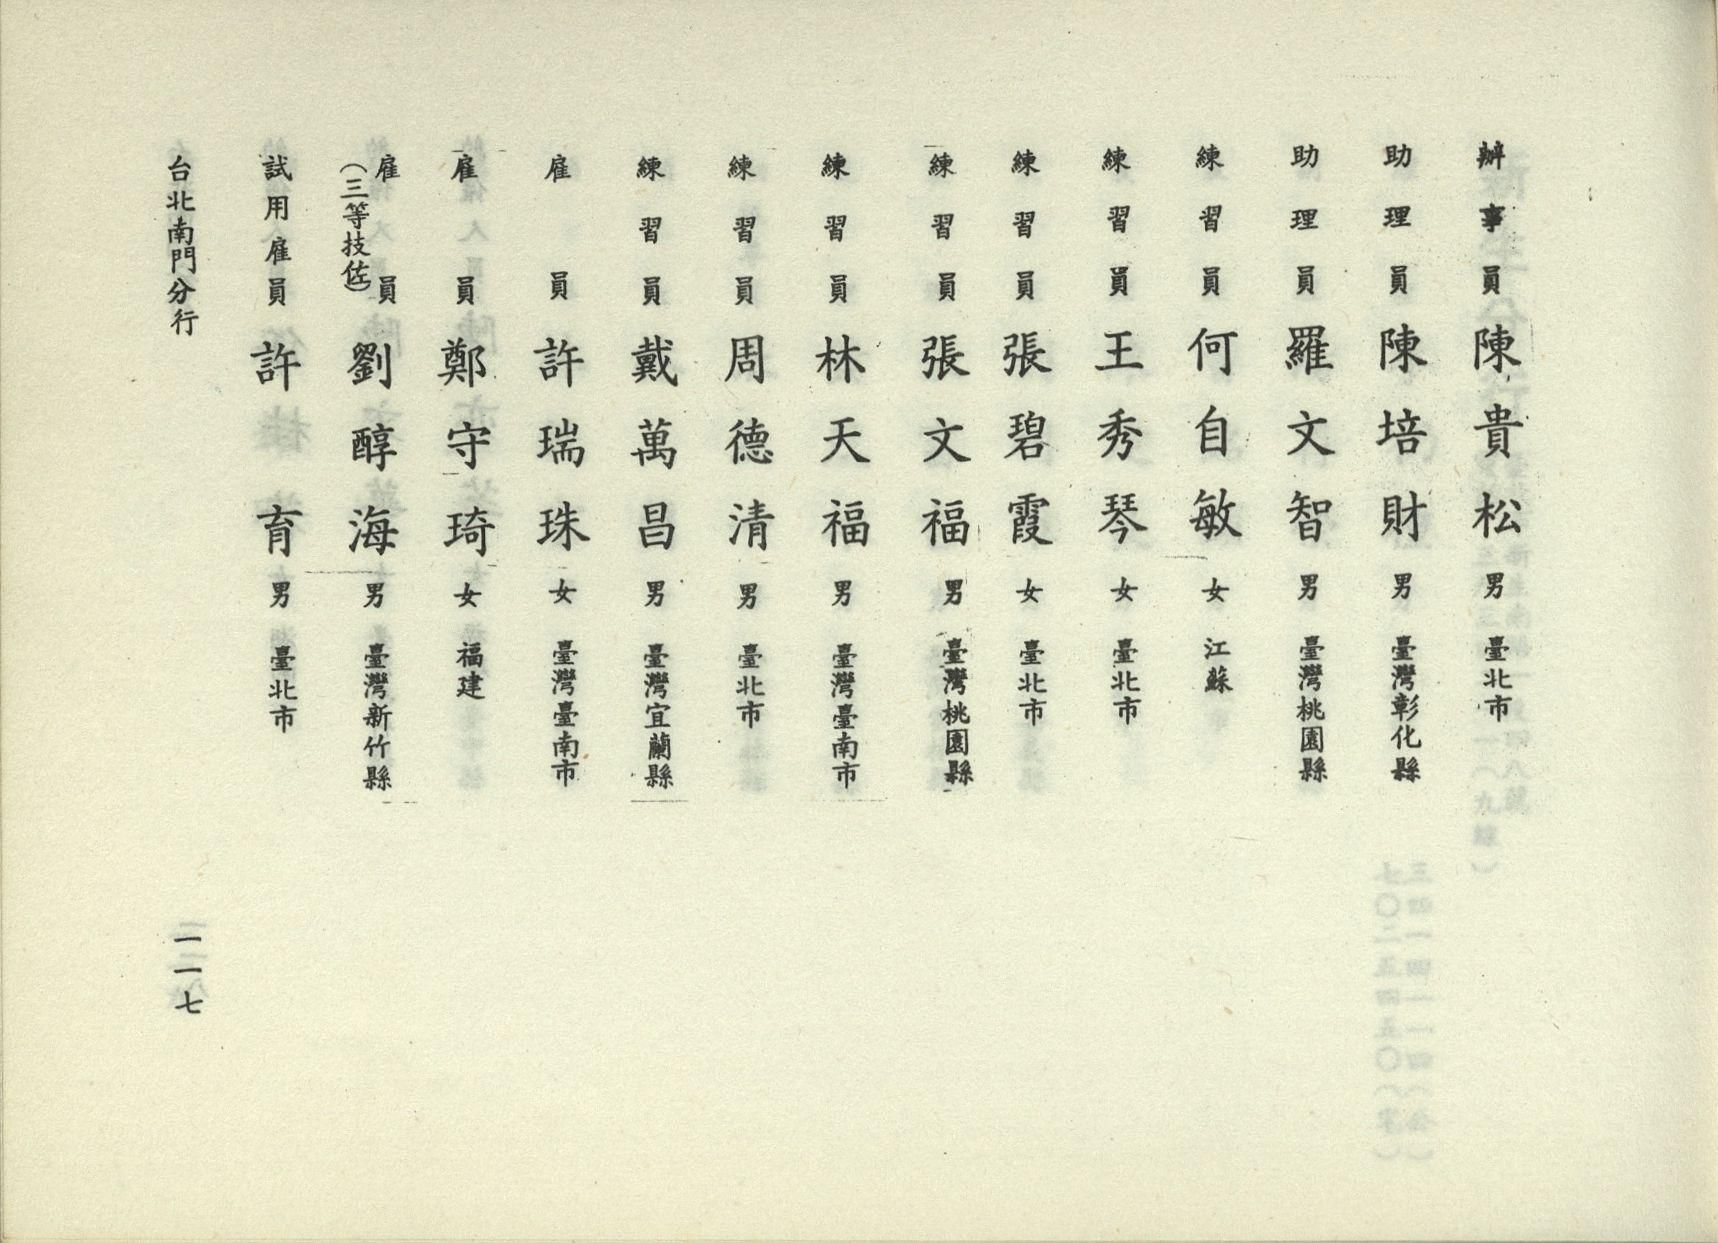 辦事員 陳貴松 男 臺北市
助理員 陳培財 男 臺灣彰化縣
助理員 羅文智 男 臺灣桃園縣
練習員 何自敏 女 江蘇
練習員 王秀琴 女 臺北市
練習員 張碧霞 女 臺北市
練習員 張文福 男 臺灣桃園縣
練習員 林天福 男 臺灣臺南市
練習員 周德清 男 臺北市
練習員 戴萬昌 男 臺灣宜蘭縣
雇員 許瑞珠 女 臺灣臺南市
雇員 鄭守琦 女 福建
雇員 劉醇海 男 臺灣新竹縣
（三等技佐）
試用雇員 許育 男 臺北市
台北南門分行 一一七